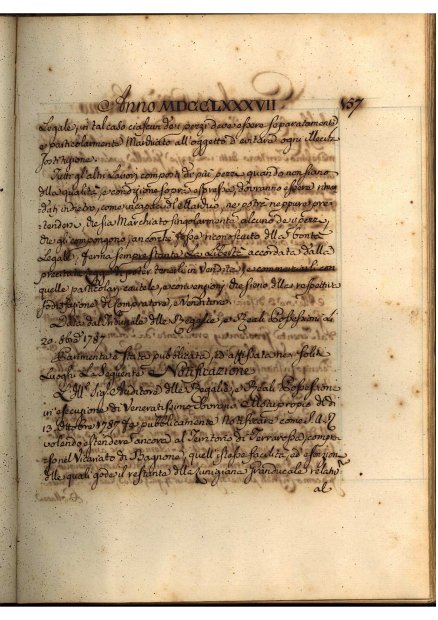 Anno MDCCLXXXVII. 157
Legale, in tal caso ciascun de i pezzi deve essere separatamente
e particolarmente Marchiato all'oggetto d'evitare ogni illecita
sostituzione.
Tutti gl'altri Lavori composti di più pezzi, quando non siano
della qualità, e condizione sopra espressa, dovranno essere
dati indietro, come incapaci di essere, ne potrà neppure pre=
tendersi, che sia Marchiato singolarmente alcuno de i pezzi,
che gli compongono, ancorché fosse riconosciuto della bontà
Legale, ferma sempre stante la Libertà accordata dalla
presente Legge di poter tenerli in Vendita, e commerciarli con
quelle particolari cautele, e convenzioni, che siano di respettiva
sodisfazione di Compratore, e Venditore.
Data dal Tribunale delle Regalie, e Reali Possessioni li
20. 8bre 1787.
Parimente è stata pubblicata, ed affissata ne i soliti
Luoghi La Seguente Notificazione
L'Ill. Sig. Auditore delle Regalie, e Reali Possessioni
in esecuzione di Veneratissimo Sovrano Motuproprio de di
13. Ottobre 1787 fa pubblicamente notificare come S. A. R.
volendo estendere ancora al Territorio di Terrarossa, compre=
so nel Vicariato di Bagnone, quell'istesse facilità, ed esenzioni
delle quali gode il restante della Lunigiana Granducale relativ.
al